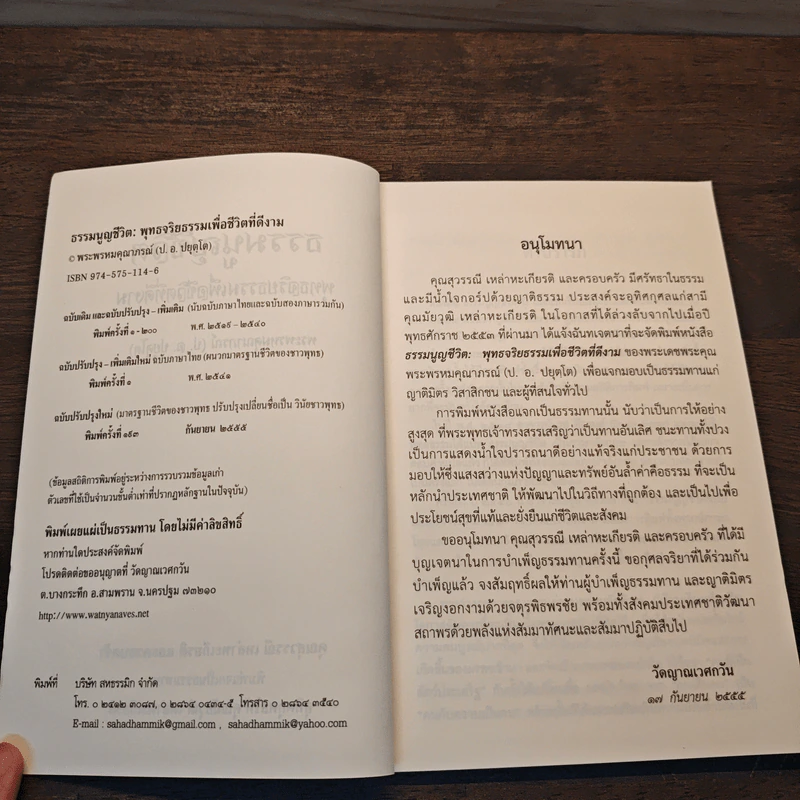 ธรรมนูญชีวิต: พุทธจริยธรรมเพื่อชีวิตที่ดีงาม
© พระพรหมคุณาภรณ์ (ป. อ. ปยุตฺโต)
ISBN 974-575-114-6
ฉบับเดิม และฉบับปรับปรุง – เพิ่มเติม (นับฉบับภาษาไทยและฉบับสองภาษารวมกัน)
พิมพ์ครั้งที่ ๑ - ๒๐๐ พ.ศ. ๒๕๑๙ – ๒๕๔๐
ฉบับปรับปรุง – เพิ่มเติมใหม่ ฉบับภาษาไทย (ผนวกมาตรฐานชีวิตของชาวพุทธ)
พิมพ์ครั้งที่ ๑ พ.ศ. ๒๕๔๑
ฉบับปรับปรุงใหม่ (มาตรฐานชีวิตของชาวพุทธ ปรับปรุงเปลี่ยนชื่อเป็น วินัยชาวพุทธ)
พิมพ์ครั้งที่ ๑๙๓ กันยายน ๒๕๕๕
(ข้อมูลสถิติการพิมพ์อยู่ระหว่างการรวบรวมข้อมูลเก่า
ตัวเลขที่ใช้เป็นจำนวนขั้นต่ำเท่าที่ปรากฏหลักฐานในปัจจุบัน)
พิมพ์เผยแผ่เป็นธรรมทาน โดยไม่มีค่าลิขสิทธิ์
หากท่านใดประสงค์จัดพิมพ์
โปรดติดต่อขออนุญาตที่ วัดญาณเวศกวัน
ต.บางกระทึก อ.สามพราน จ.นครปฐม ๗๓๒๑๐
http://www.watnyanaves.net
พิมพ์ที่ บริษัท สหธรรมิก จำกัด
โทร. ๐ ๒๔๑๒ ๓๐๘๗, ๐ ๒๘๖๔ ๐๔๓๔-๕ โทรสาร ๐ ๒๘๖๔ ๓๕๔๐
E-mail : sahadhammik@gmail.com , sahadhammik@yahoo.com
อนุโมทนา
คุณสุวรรณี เหล่าหะเกียรติ และครอบครัว มีศรัทธาในธรรม
และมีน้ำใจกอร์ปด้วยญาติธรรม ประสงค์จะอุทิศกุศลแก่สามี
คุณมัยวุฒิ เหล่าหะเกียรติ ในโอกาสที่ได้ล่วงลับจากไปเมื่อปี
พุทธศักราช ๒๕๕๓ ที่ผ่านมา ได้แจ้งฉันทเจตนาที่จะจัดพิมพ์หนังสือ
ธรรมนูญชีวิต: พุทธจริยธรรมเพื่อชีวิตที่ดีงาม ของพระเดชพระคุณ
พระพรหมคุณาภรณ์ (ป. อ. ปยุตฺโต) เพื่อแจกมอบเป็นธรรมทานแก่
ญาติมิตร วิสาสิกชน และผู้ที่สนใจทั่วไป
การพิมพ์หนังสือแจกเป็นธรรมทานนั้น นับว่าเป็นการให้อย่าง
สูงสุด ที่พระพุทธเจ้าทรงสรรเสริญว่าเป็นทานอันเลิศ ชนะทานทั้งปวง
เป็นการแสดงน้ำใจปรารถนาดีอย่างแท้จริงแก่ประชาชน ด้วยการ
มอบให้ซึ่งแสงสว่างแห่งปัญญาและทรัพย์อันล้ำค่าคือธรรม ที่จะเป็น
หลักนำประเทศชาติ ให้พัฒนาไปในวิถีทางที่ถูกต้อง และเป็นไปเพื่อ
ประโยชน์สุขที่แท้และยั่งยืนแก่ชีวิตและสังคม
ขออนุโมทนา คุณสุวรรณี เหล่าหะเกียรติ และครอบครัว ที่ได้มี
บุญเจตนาในการบำเพ็ญธรรมทานครั้งนี้ ขอกุศลจริยาที่ได้ร่วมกัน
บำเพ็ญแล้ว จงสัมฤทธิ์ผลให้ท่านผู้บำเพ็ญธรรมทาน และญาติมิตร
เจริญงอกงามด้วยจตุรพิธพรชัย พร้อมทั้งสังคมประเทศชาติวัฒนา
สถาพรด้วยพลังแห่งสัมมาทัศนะและสัมมาปฏิบัติสืบไป
วัดญาณเวศกวัน
๑๗ กันยายน ๒๕๕๕